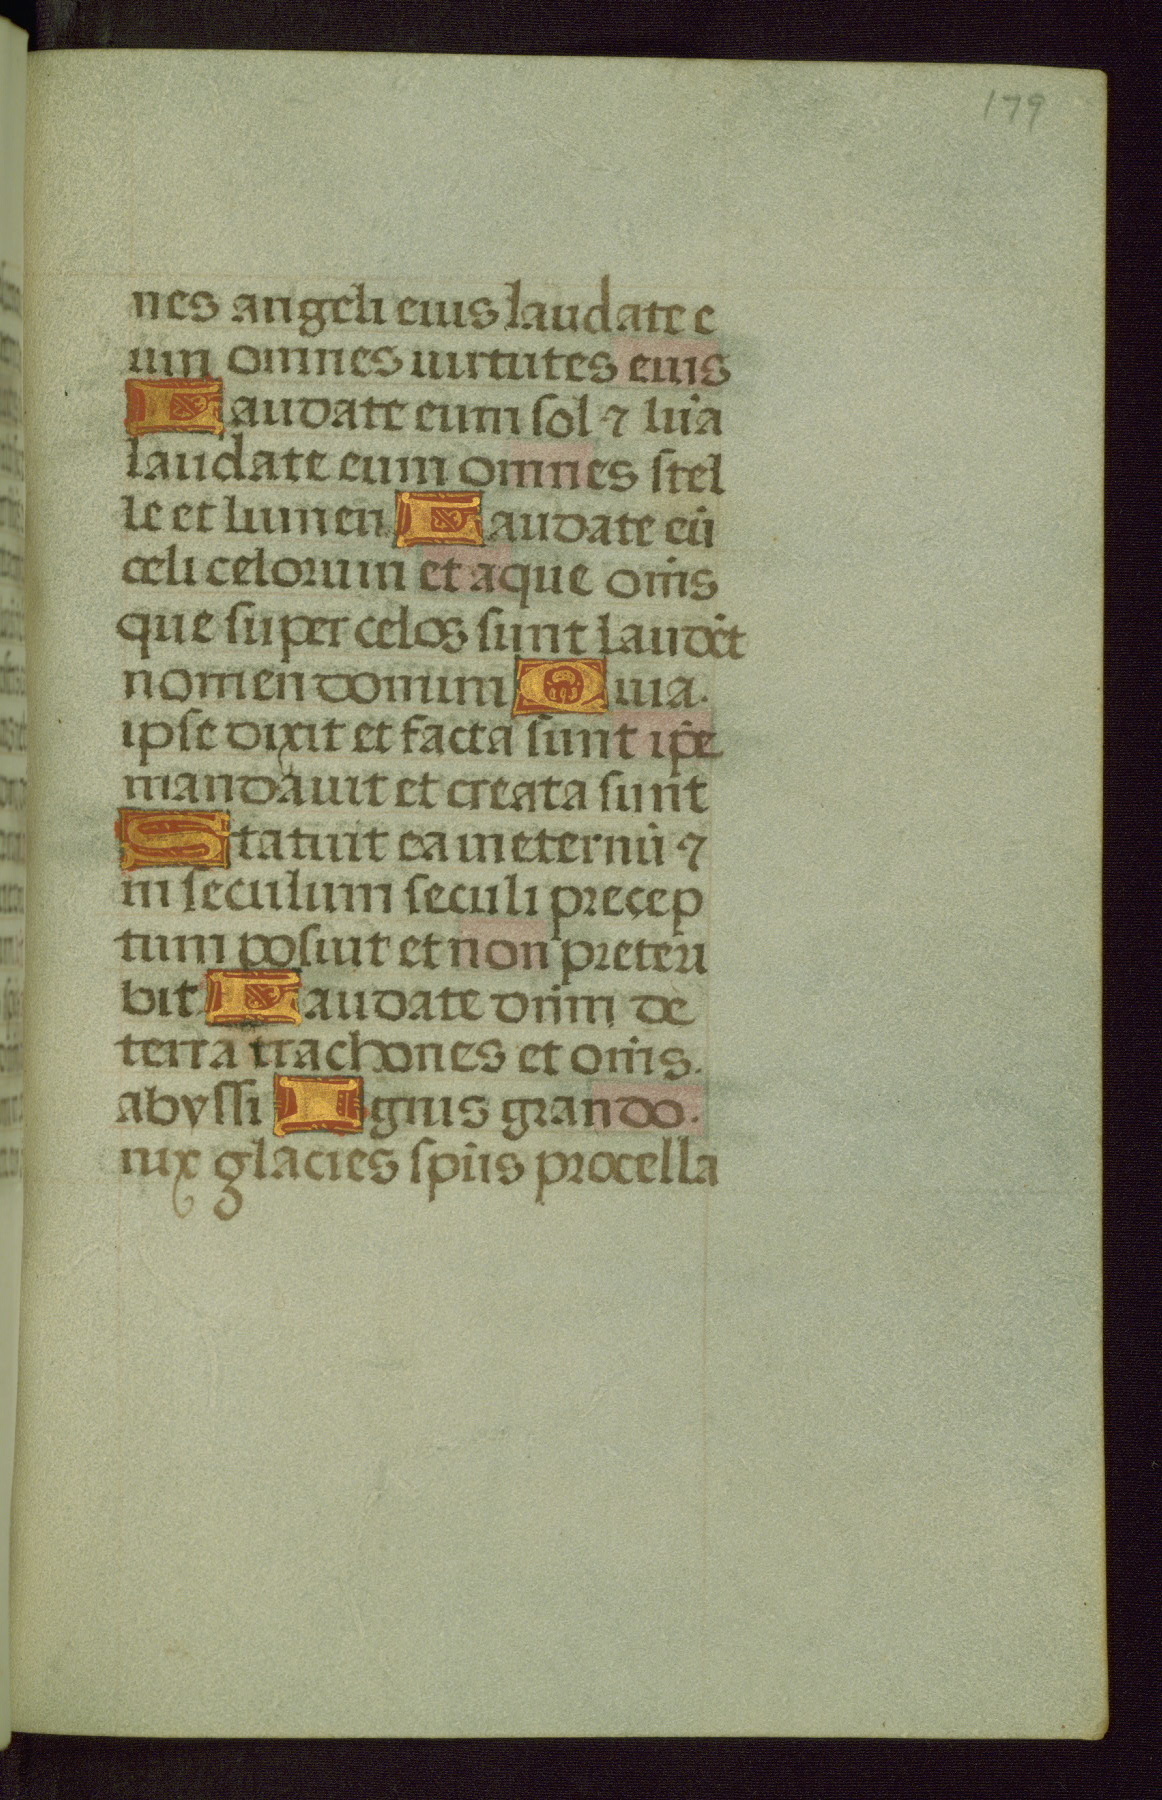 179
nes angeli eius laudate e
um omnes uirtutes eius
Laudate eum sol ⁊ lūa
laudate eum omnes stel
le et lumen Laudate eū
celi celorum et aque om̄s
que super celos sunt laudēt
nomen domini Quia.
ipse dixit et facta sunt ip̄e
mandauit et creata sunt
Statuit ea in eternū ⁊
in seculum seculi precep
tum posuit et non preteri
bit Laudate dn̄m de
terra trachones et om̄s.
abyssi Ignis grando.
nix glacies sp̄us procella